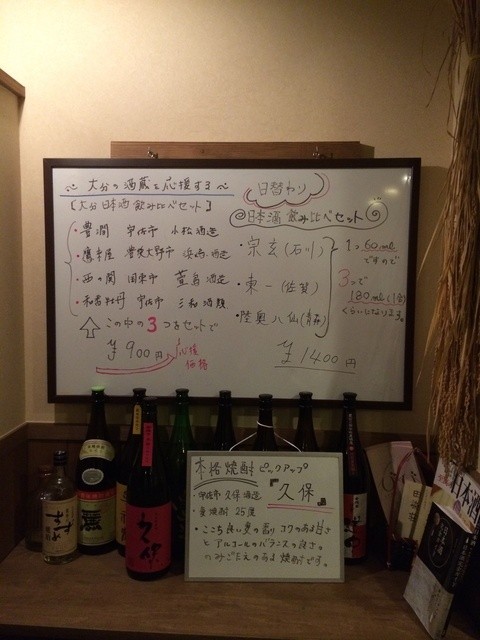 ～ 大分の酒蔵を応援する ～
【大分日本酒飲み比べセット】
・豊潤 宇佐市 小松酒造
・鷹来屋 豊後大野市 浜嶋酒造
・西の関 国東市 萱島酒造
・和香牡丹 宇佐市 三和酒類
この中の3つをセットで
¥900円
応援
価格
日替わり
日本酒飲み比べセット
宗玄(石川)
・東一(佐賀)
・陸奥八仙(青森)
1つ60mℓ
ですので
3つで
180mℓ(1合)
くらいになります。
¥1400円
本格焼酎ピックアップ
・宇佐市 久保酒造
『久保』
・麦焼酎 25度
・ここち良い麦の香り コクのある甘さ
とアルコールのバランスの良さの
のみごたえのある焼酎です。
久保
日本酒